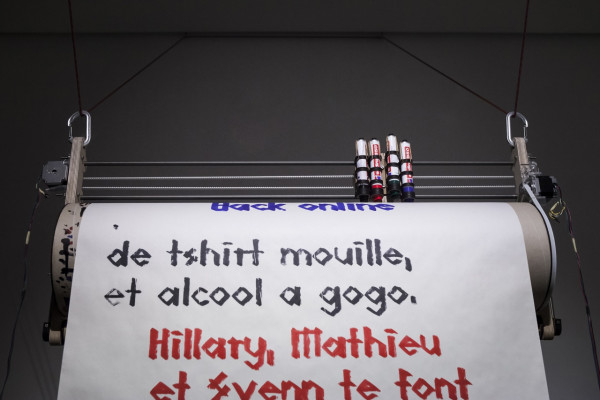 Back online
de tshirt mouille,
et alcool a gogo.
Hillary, Mathieu
et Svenn te font